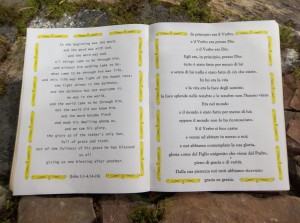 In the beginning was the Word
and the Word was with God,
and the Word was God.
All things came to be through him,
and without him nothing came to be.
What came to be through him was life,
and this life was the light of the human race;
the light shines in the darkness,
and the darkness has not overcome it.
He was in the world,
and the world came to be through him,
but the world did not know him.
And the Word became flesh
and made his dwelling among us,
and we saw his glory,
the glory as of the Father's only Son,
full of grace and truth.
Out of the fullness of his grace he has blessed
us all
giving us one blessing after another.
In principio era il Verbo
e il Verbo era presso Dio
e il Verbo era Dio.
Egli era, in principio, presso Dio:
tutto è stato fatto per mezzo di lui
e senza di lui nulla è stato fatto di ciò che esiste.
In lui era la vita
e la vita era la luce degli uomini;
la luce splende nelle tenebre e le tenebre non l'hanno vinta
Era nel mondo
e il mondo è stato fatto per mezzo di lui
eppure il mondo non lo ha riconosciuto.
E il Verbo si fece carne
e venne ad abitare in mezzo a noi
e noi abbiamo contemplato la sua gloria,
gloria come del Figlio unigenito che viene dal Padre,
pieno di grazia e di verità.
Dalla sua pienezza noi tutti abbiamo ricevuto:
grazia su grazia.